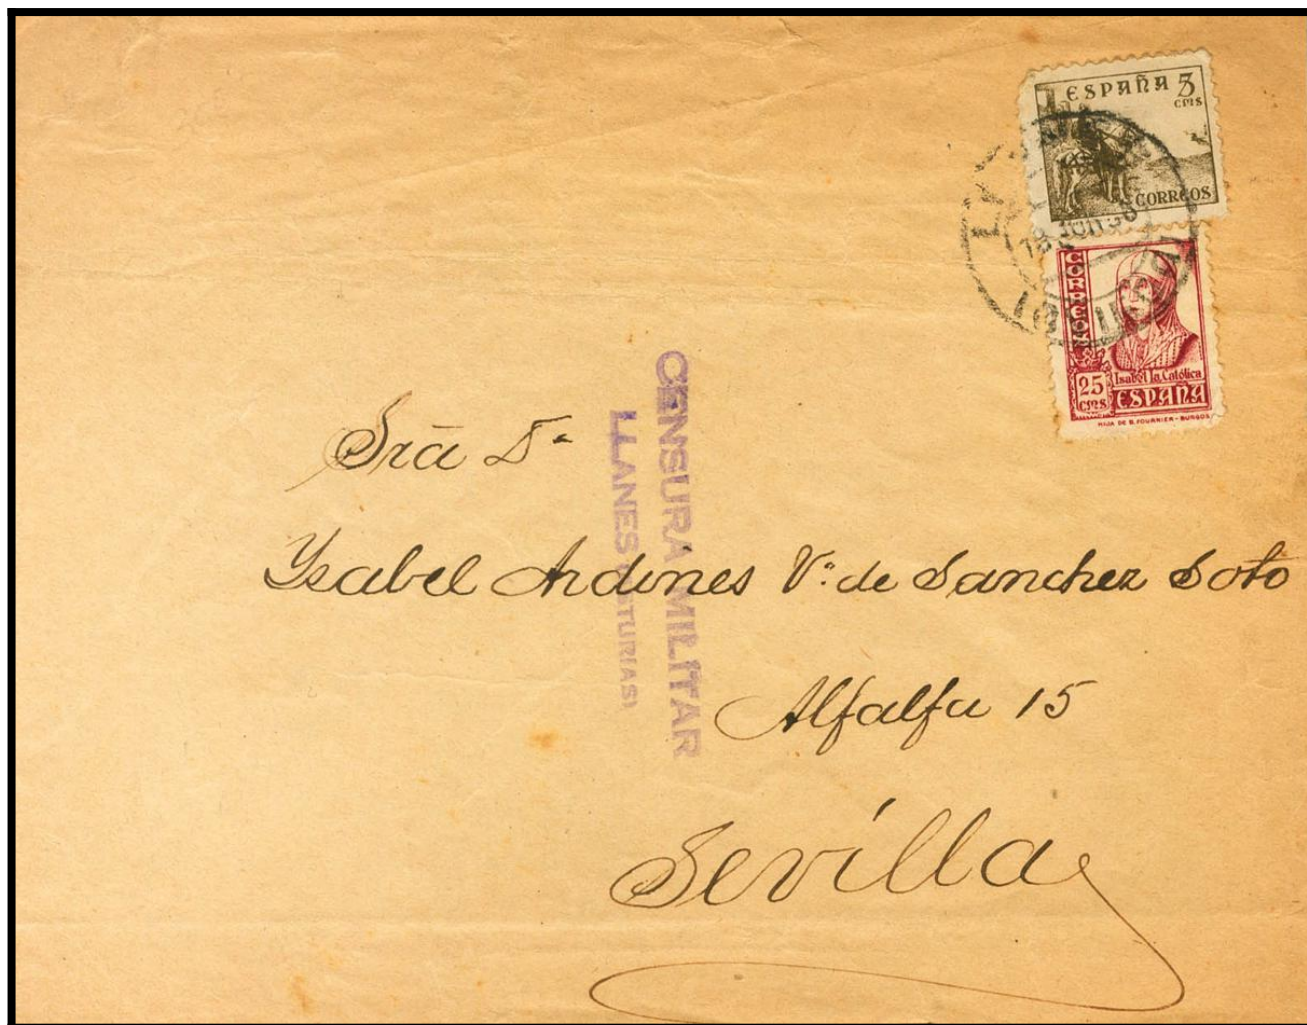 ESPAÑA 5
CMS
CORREOS
CORREOS
Isabel la Católica
25
CMS
ESPAÑA
HIJA DE B. FOURNIER - BURGOS
CENSURA MILITAR
LLANES (ASTURIAS)
Sra Dª
Ysabel Andines Vª de Sanchez Soto
Alfalfa 15
Sevilla